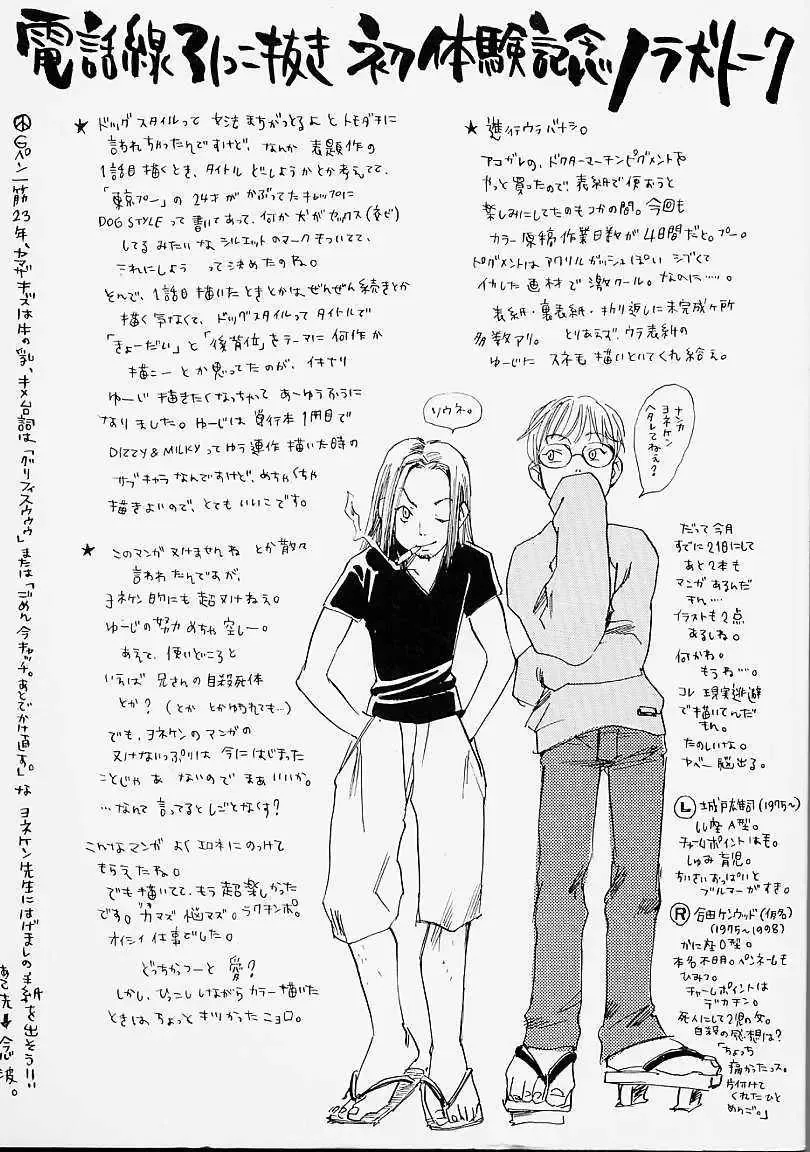 電話線引っこ抜き 初体験記念ノラ犬トーク
★ ドッグスタイルって 文法まちがっとるよ とトモダチに
言われちゃったんですけど、なんか 表題作の
1話目描くとき、タイトル どしようか とか考えてて、
「東京プー」の 24才が かぶってた キャップに
DOG STYLE って 書いてあって、何か 犬が セックス(交ビ)
してる みたいな シルエットの マークも ついてて、
これにしよう って 決めたのね。
とんで、1話目 描いたときとかは、ぜんぜん続きとか
描く気なくて、ドッグスタイルって タイトルで
「きょーだい」と「後背位」をテーマに 何作か
描こー とか思ってたのが、イキナリ
ゆーじ 描きたくなっちゃって あーゆうふうに
なりました。ゆーじは 単行本1冊目で
DIZZY & MILKY ってゆう連作 描いた時の
サブキャラなんですけど、めちゃくちゃ
描きよいので、とても いいこです。
★ このマンガ 抜けませんね とか散々
言われたんですが、
ヨネケン的にも 超抜けねぇ。
ゆーじの努力 めちゃ空しー。
あえて、使いどころと
いえば 兄さんの自殺死体
とか?(とか とかゆられても…)
でも、ヨネケンのマンガの
抜けないっぷりは 今にはじまった
ことじゃあ ないので まぁいいか。
…なんて 言ってると しごとなくす?
こんなマンガ よく エロネにのっけて
もらえたね。
でも描いてて、もう 超楽しかった
です。ガマズ 悩マズ。ラクチンポ。
オイシイ 仕事でした。
どっちかつーと 愛?
しかし、ひっこししながら カラー描いた
ときは、ちょっと キツかったニョロ。
★ 進行ウラバナシ。
アコガレの、ドクターマーチンピグメントを
やっと買ったので、表紙で使おうと
楽しみにしてたのもつかの間。今回も
カラー原稿作業日数が 4日間だと。プー。
ピグメントは アクリルガッシュぽい シブくて
イカした画材で 激クール。なのに……。
表紙・裏表紙・折り返しに未完成ヶ所
多数アリ。 とりあえず、ウラ表紙の
ゆーじに スネ毛 描いといてくれ給え。
ソウネ。
ナンカ
ヨネケン
ヘタレてねぇ?
だって今月
すでに21日にして
あと2本も
マンガあるんだ
もん……
イラストも2点
あるしね。
何かね。
もうね…。
コレ 現実逃避
で描いてんだ
もん。
たのしいな。
ヤベー 脳出る。
Ⓛ 城戸雄司(1975〜)
しし座A型。
チャームポイントは毛。
しゅみ 育児。
ちいさいおっぱいと
ブルマーがすき。
Ⓡ 合田ケンウッド(仮名)
(1975〜1998)
かに座O型。
本名不明。ペンネームも
ひみつ。
チャームポイントは
デカチン。
死人にして2児の父。
自殺の感想は?
「ちょっち
痛かったっス。
片付けて
くれたひと
めんご。」
㊉Gペン一筋23年、ヤマザキズは牛の乳、キメ台詞は、「グリフィスウゥゥ」または「ごめん今キャッチ。あとでかけ直す。」な ヨネケン先生にはげましの手紙を出そう!!
あて先↓今心波。